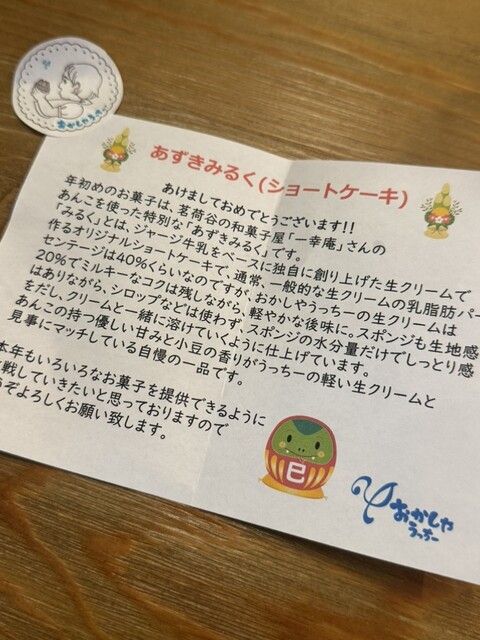 おかしやうっちー
あずきみるく(ショートケーキ)
あけましておめでとうございます!!
年初めのお菓子は、茗荷谷の和菓子屋「一幸庵」さんの
あんこを使った特別な「あずきみるく」です。
「みるく」とは、ジャージ牛乳をベースに独自に創り上げた生クリームで
作るオリジナルショートケーキで、通常、一般的な生クリームの乳脂肪パー
センテージは40%くらいなのですが、おかしやうっちーの生クリームは
20%でミルキーなコクは残しながら、軽やかな後味に。スポンジも生地感
はありながら、シロップなどは使わず、スポンジの水分量だけでしっとり感
をだし、クリームと一緒に溶けていくように仕上げています。
あんこの持つ優しい甘みと小豆の香りがうっちーの軽い生クリームと
見事にマッチしている自慢の一品です。
本年もいろいろなお菓子を提供できるように
戦していきたいと思っておりますので
うぞよろしくお願い致します。
巳
おかしや
うっちー